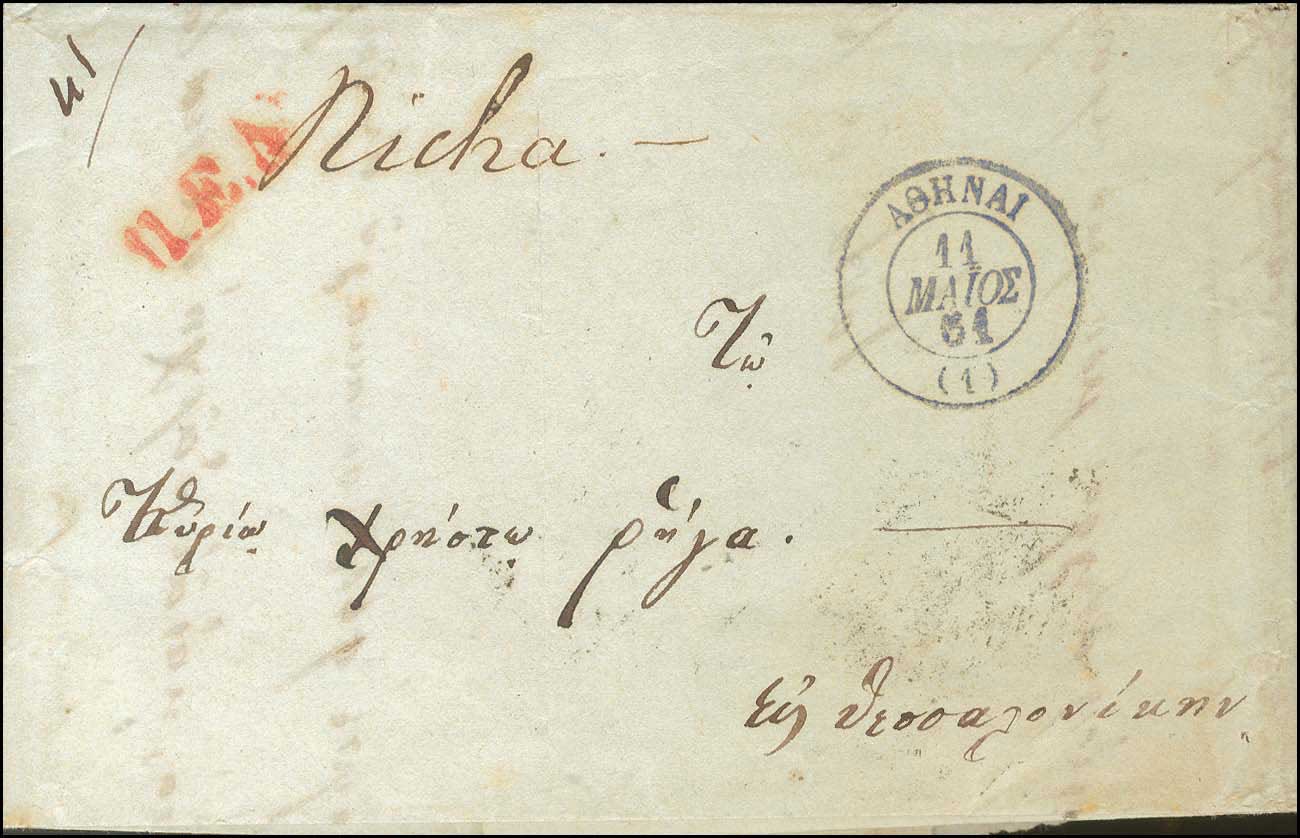 Richa. —
Π.Ε.Α
ΑΘΗΝΑΙ
11
ΜΑΪΟΣ
61
(1)
Τῷ
Κυρίῳ Χρήστῳ ρήγα.
Εἰς Θεσσαλονίκην